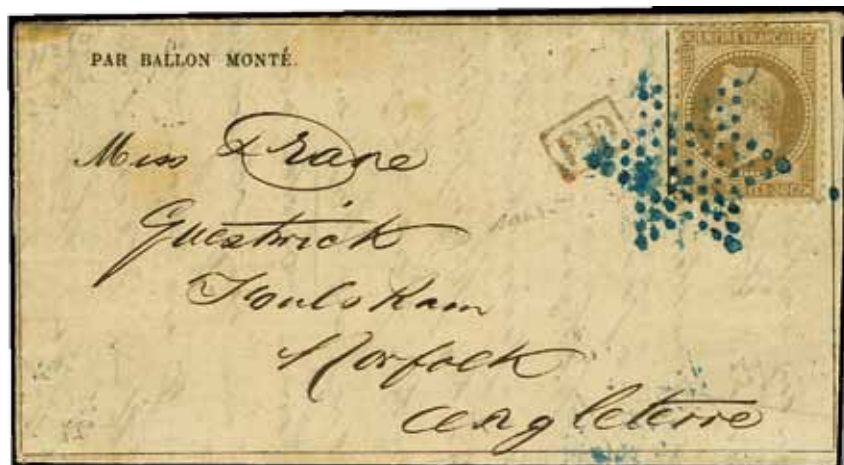 EMPIRE FRANÇAIS
PAR BALLON MONTÉ.
PD
Miss Drane
Guestwick
Foulsham
Norfolk
Angleterre